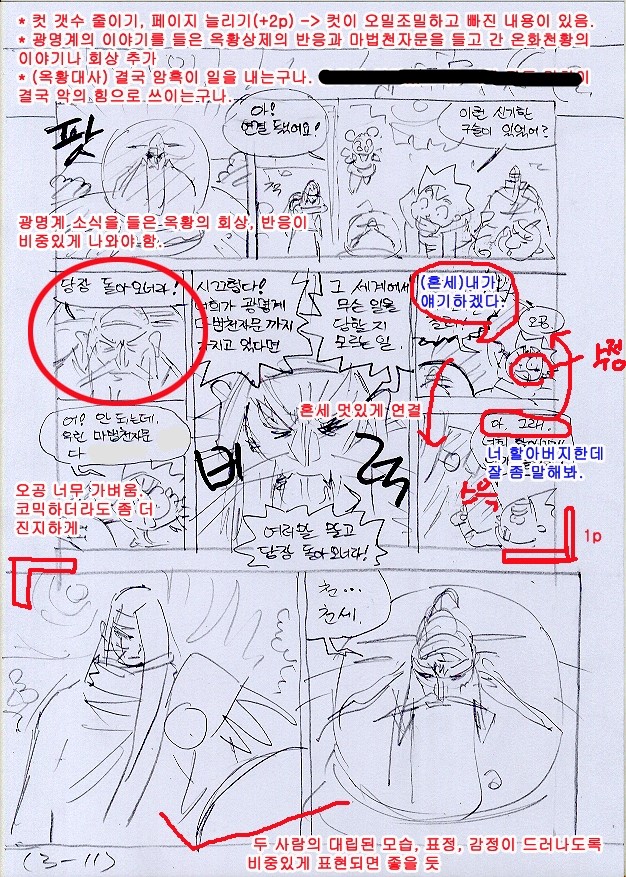 * 컷 갯수 줄이기, 페이지 늘리기(+2p) -> 컷이 오밀조밀하고 빠진 내용이 있음.
* 광명계의 이야기를 들은 옥황상제의 반응과 마법천자문을 들고 간 온화천황의
이야기나 회상 추가
* (옥황대사) 결국 암흑이 일을 내는구나.
결국 악의 힘으로 쓰이는구나.
팟
아!
연결 됐어요!
이런 신기한
구슬이 있었어?
광명계 소식을 들은 옥황의 회상, 반응이
비중있게 나와야 함.
당장 돌아오너라!
시끄럽다!
너희가 광명계
마법천자문까지
가지고 있다면
그 세계에서
무슨 일을
당할 지
모르는 일.
(혼세)내가
얘기하겠다.
오공
수정
혼세 멋있게 연결
어! 안 되는데.
마법천자문
다
버
럭
아, 그래.
너 할아버지한데
잘 좀 말해봐.
오공 너무 가벼움.
코믹하더라도 좀 더
진지하게
수욱
여러말 말고
당장 돌아오너라!
1p
천...
천세.
두 사람의 대립된 모습, 표정, 감정이 드러나도록
비중있게 표현되면 좋을 듯
(3-11)